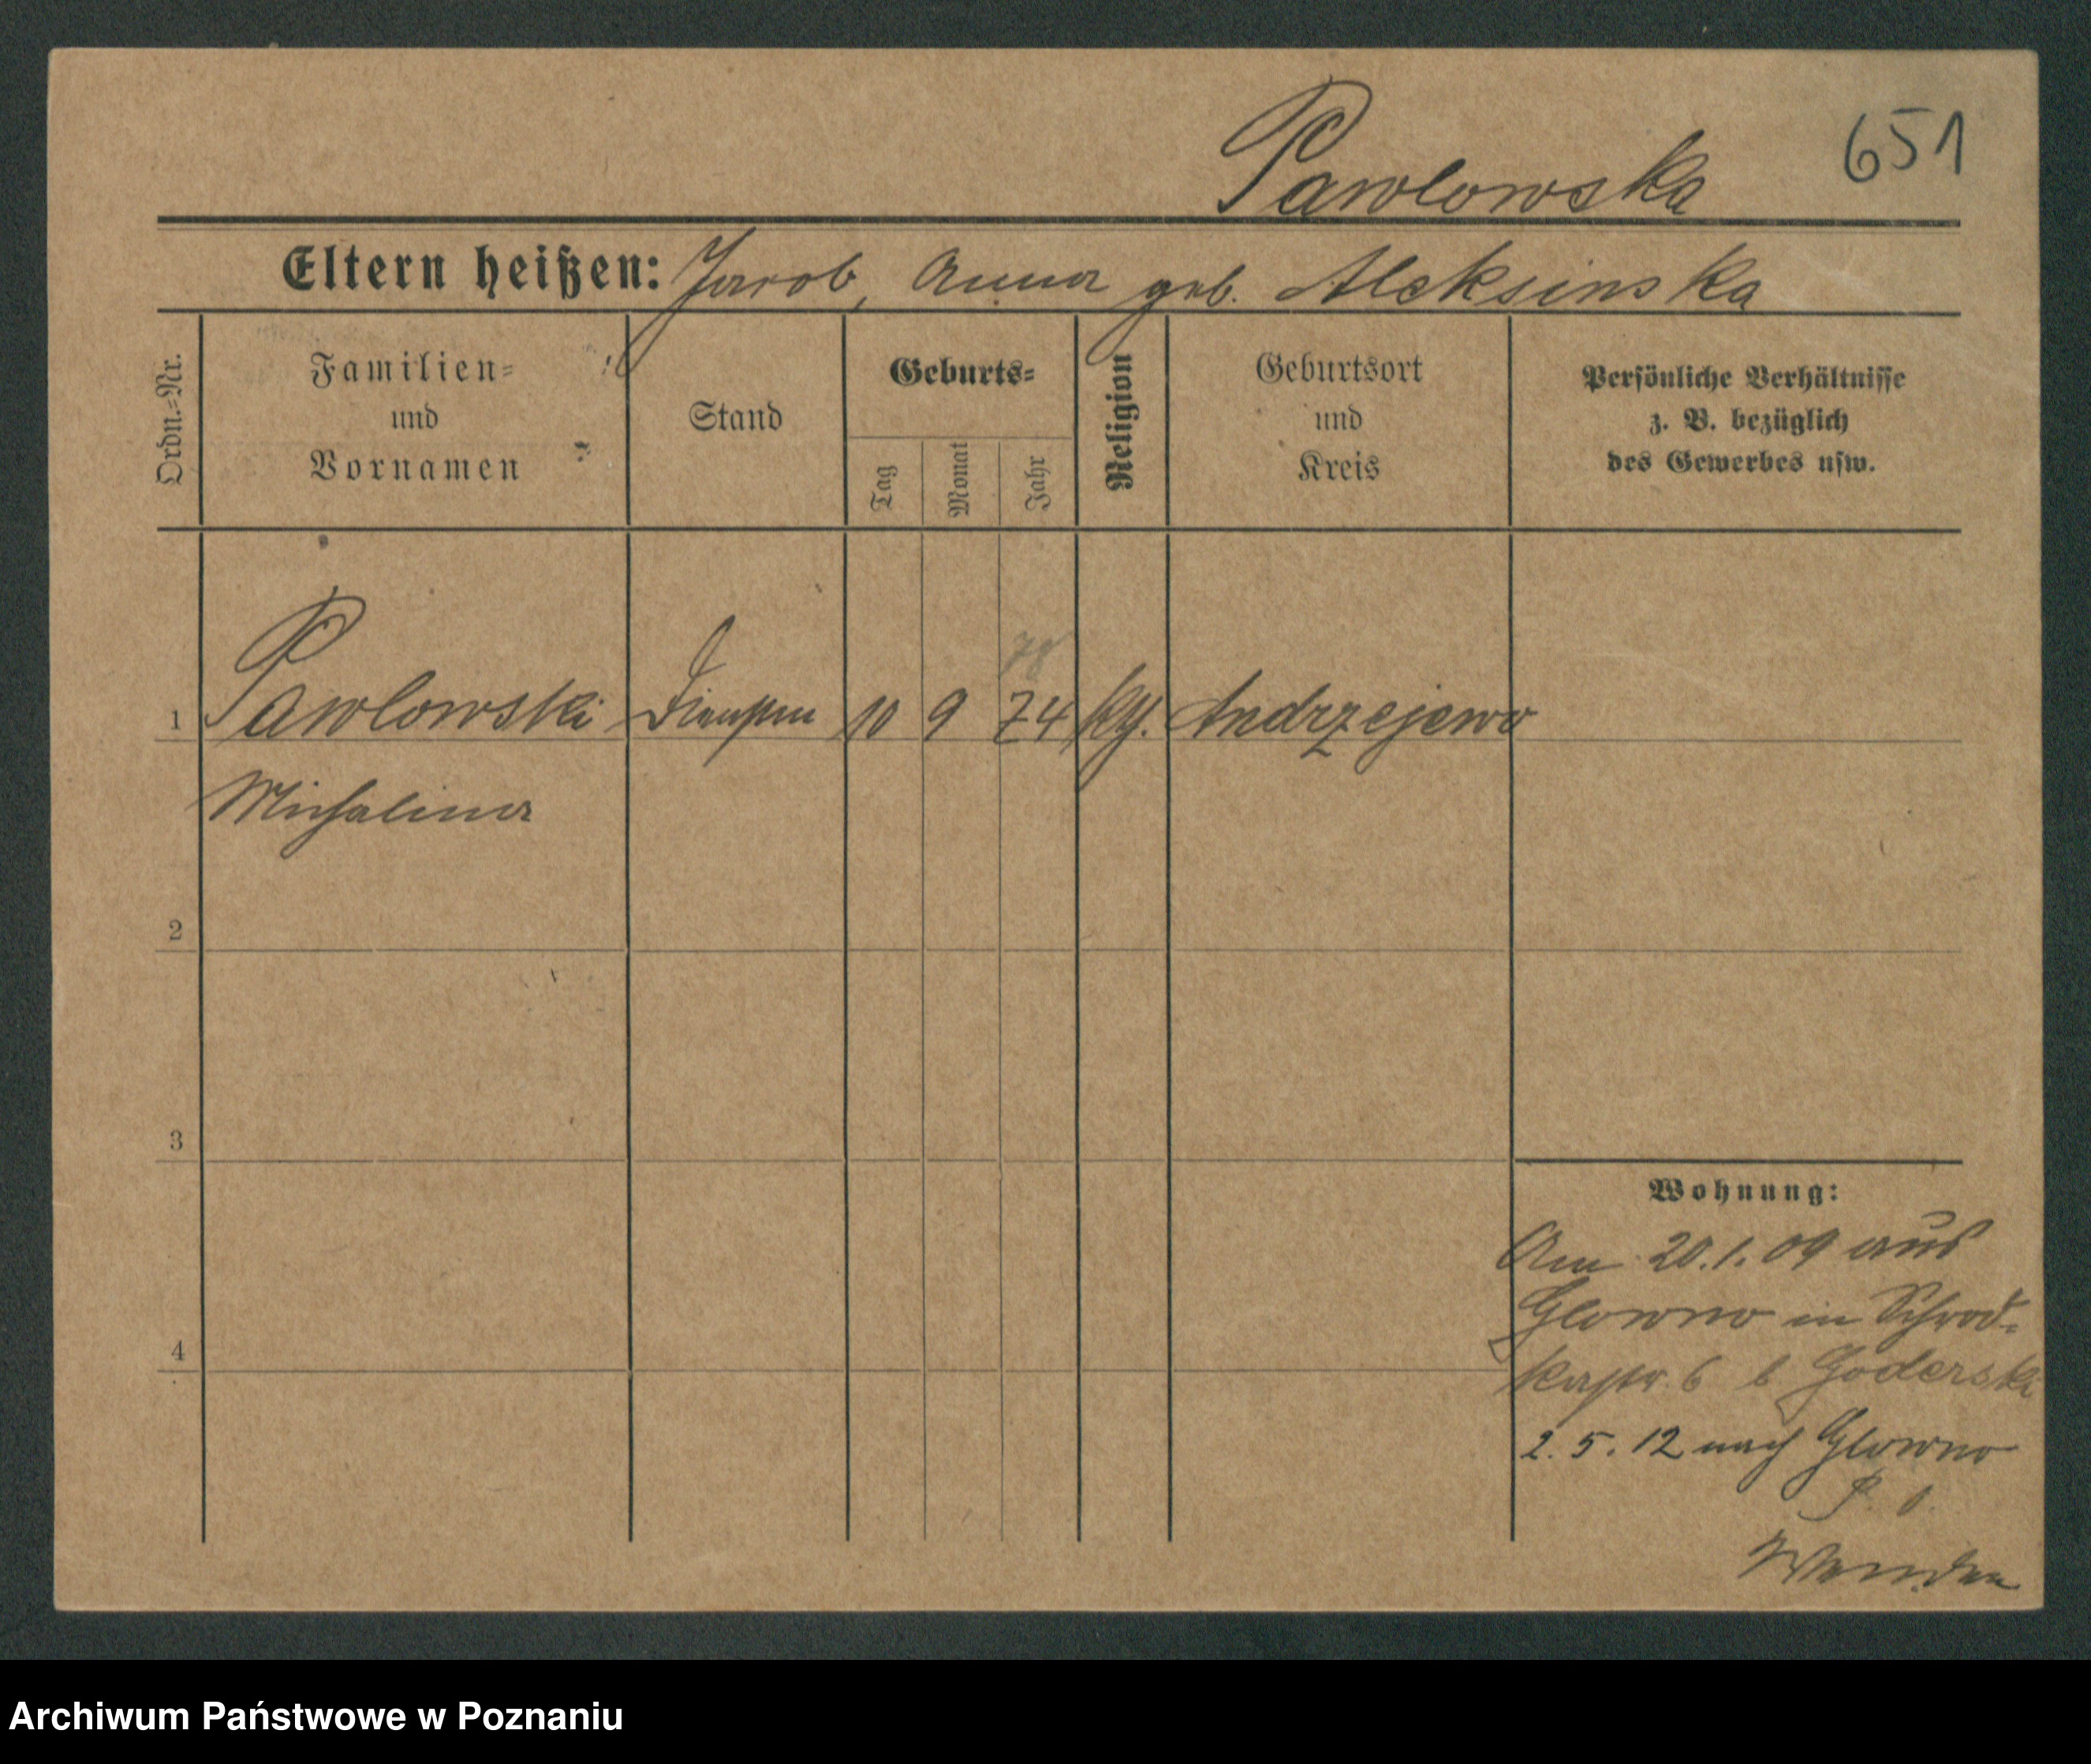 Pawlowska 651
Eltern heißen: Jacob, Anna geb. Aleksinska
Ordn.=Nr.
Familien=
und
Vornamen
Stand
Geburts=
Tag
Monat
Jahr
Religion
Geburtsort
und
Kreis
Persönliche Verhältnisse
z. B. bezüglich
des Gewerbes usw.
78
1 Pawlowski 10 9 74 kth. Andrzejewo
Michalina
2
3
4
Wohnung:
Am 20.1.09 aus
Glowno in Schrod=
kastr. 6 b Goderski
2. 5. 12 nach Glowno
P. O.
Archiwum Państwowe w Poznaniu